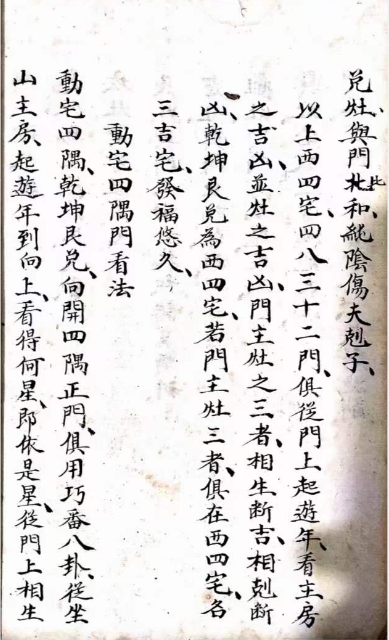 兌灶與門比和純陰傷夫剋子、
以上西四宅、四八三十二門、俱從門上起遊年、看主房
之吉凶、並灶之吉凶、門主灶之三者、相生断吉、相剋断
凶、乾坤艮兌為西四宅、若門主灶三者、俱在西四宅、名
三吉宅、發福悠久、
動宅四隅門看法
動宅四隅、乾坤艮兌、向開四隅正門、俱用巧番八卦、從坐
山主房、起遊年到向上、看得何星、即依是星、從門上相生